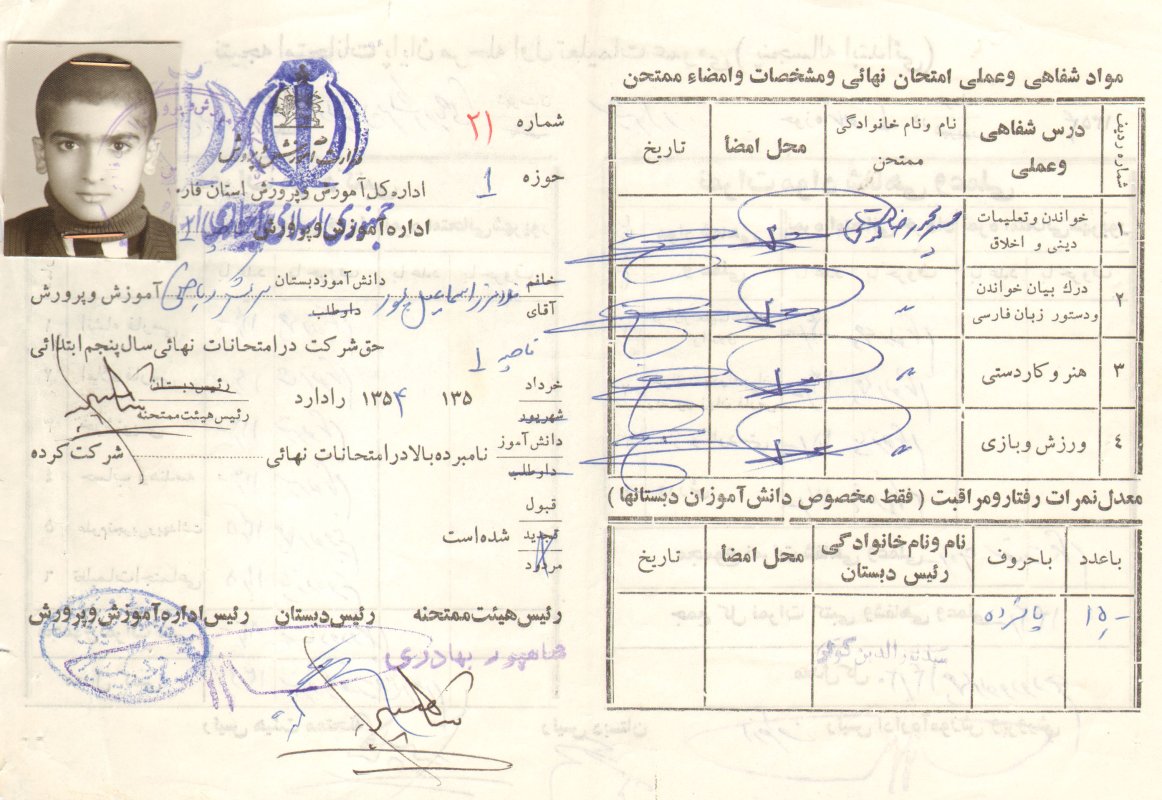 مواد شفاهی وعملی امتحان نهائی ومشخصات وامضاء ممتحن
شماره ردیف
درس شفاهی وعملی
نام ونام خانوادگی ممتحن
محل امضأ
تاریخ
۱
خواندن وتعلیمات دینی و اخلاق
۲
درك بیان خواندن ودستور زبان فارسی
〃
۳
هنر و کاردستی
〃
۴
ورزش وبازی
〃
معدل نمرات رفتار ومراقبت ( فقط مخصوص دانش آموزان دبستانها )
باعدد
باحروف
نام ونام خانوادگی رئیس دبستان
محل امضأ
تاریخ
۱۵/-
پانزده
سیدنورالدین
شماره ۲۱
حوزه ۱
وزارت آموزش و پرورش
اداره کل آموزش وپرورش استان فارس
اداره آموزش وپرورش
جمهوری اسلامی ایران
خانم
آقای
اسماعیل پور
دانش آموز دبستان
داوطلب
ریاضی
آموزش وپرورش
ناحیه ۱
حق شرکت در امتحانات نهائی سال پنجم ابتدائی
خرداد
شهریور
۱۳۵ ۱۳۵۴ رادارد
رئیس دبستان
رئیس هیئت ممتحنه
دانش آموز
داوطلب
نامبرده بالا در امتحانات نهائی
شرکت کرده
قبول
تجدید
مردود
شده است
رئیس هیئت ممتحنه
رئیس دبستان
رئیس اداره آموزش وپرورش
بهادری